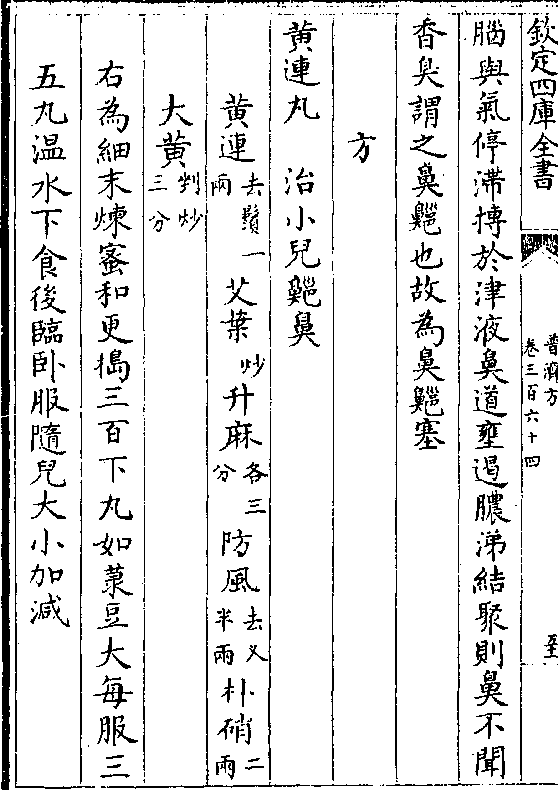 欽定四庫全書
普濟方
卷三百六十四
至
腦與氣停滯搏於津液鼻道壅遏膿涕結聚則鼻不聞
香臭謂之鼻齆也故為鼻齆塞
方
黄連丸 治小兒齆鼻
黄連去鬚一兩 艾葉炒 升麻各三分 防風去叉半兩 朴硝二兩
大黄剉炒三分
右為細末煉蜜和更搗三百下丸如菉豆大每服三
五丸温水下食後臨卧服隨兒大小加減